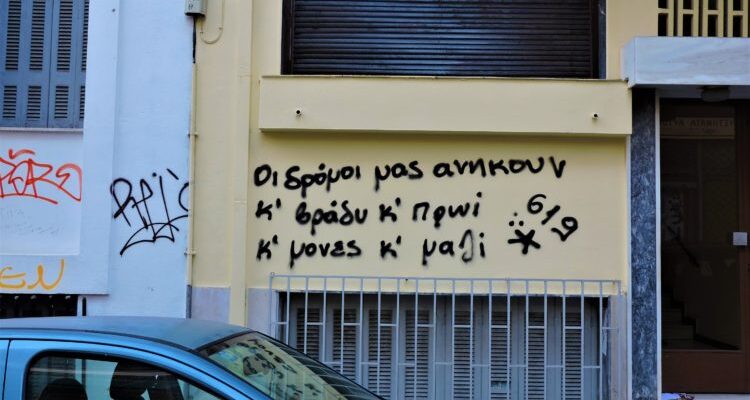 Οι δρόμοι μας ανηκουν
κ' βράδυ κ' πρωί
κ' μονες κ' μαζί
619